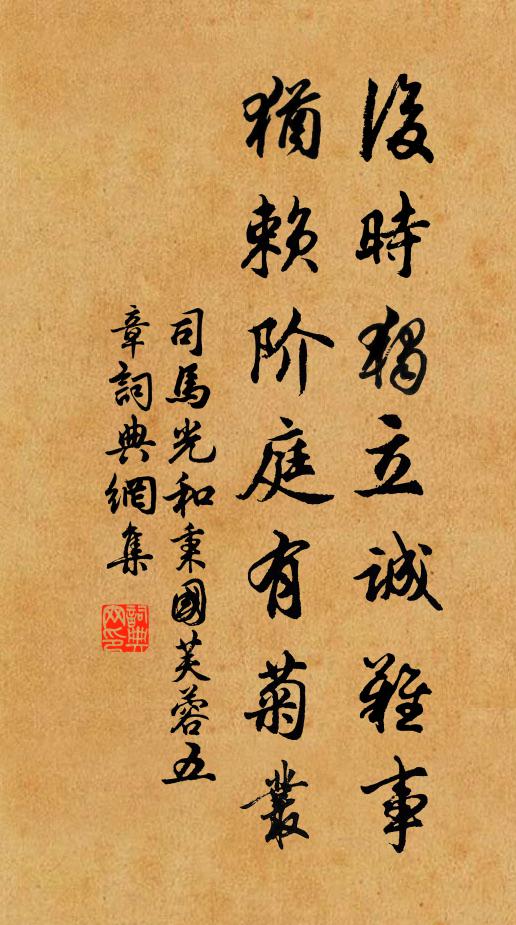 後時獨立誠難事
猶賴阶庭有菊叢
司馬光和秉國芙蓉五
章詞典網集
詞典网印